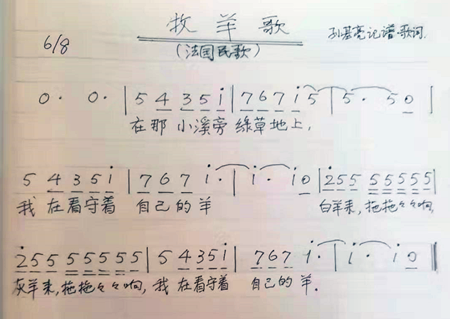 牧羊歌
6/8
(法国民歌)
孙基亮记谱歌词
0· 0· | 5 4 3 5 i̇ | 7 6 7 i̇ 5 | 5· 5 0 |
在那小溪旁绿草地上,
5 4 3 5 i̇ | 7 6 7 i̇· | i̇· i̇ 0 | 2̇ 5 5 5 5 5 5 5
我在看守着 自己的羊 白羊来,拖拖々々响,
2̇ 5 5 5 5 5 5 5 | 5 4 3 5 i̇ | 7 6 7 i̇· | i̇· i̇ 0 ‖
灰羊来,拖拖々々响,我在看守着 自己的羊.